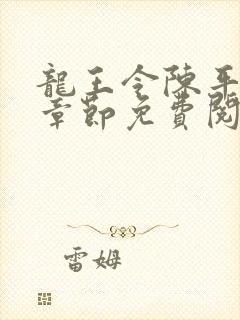 龍王令陳平
章節免費閱
雷姆